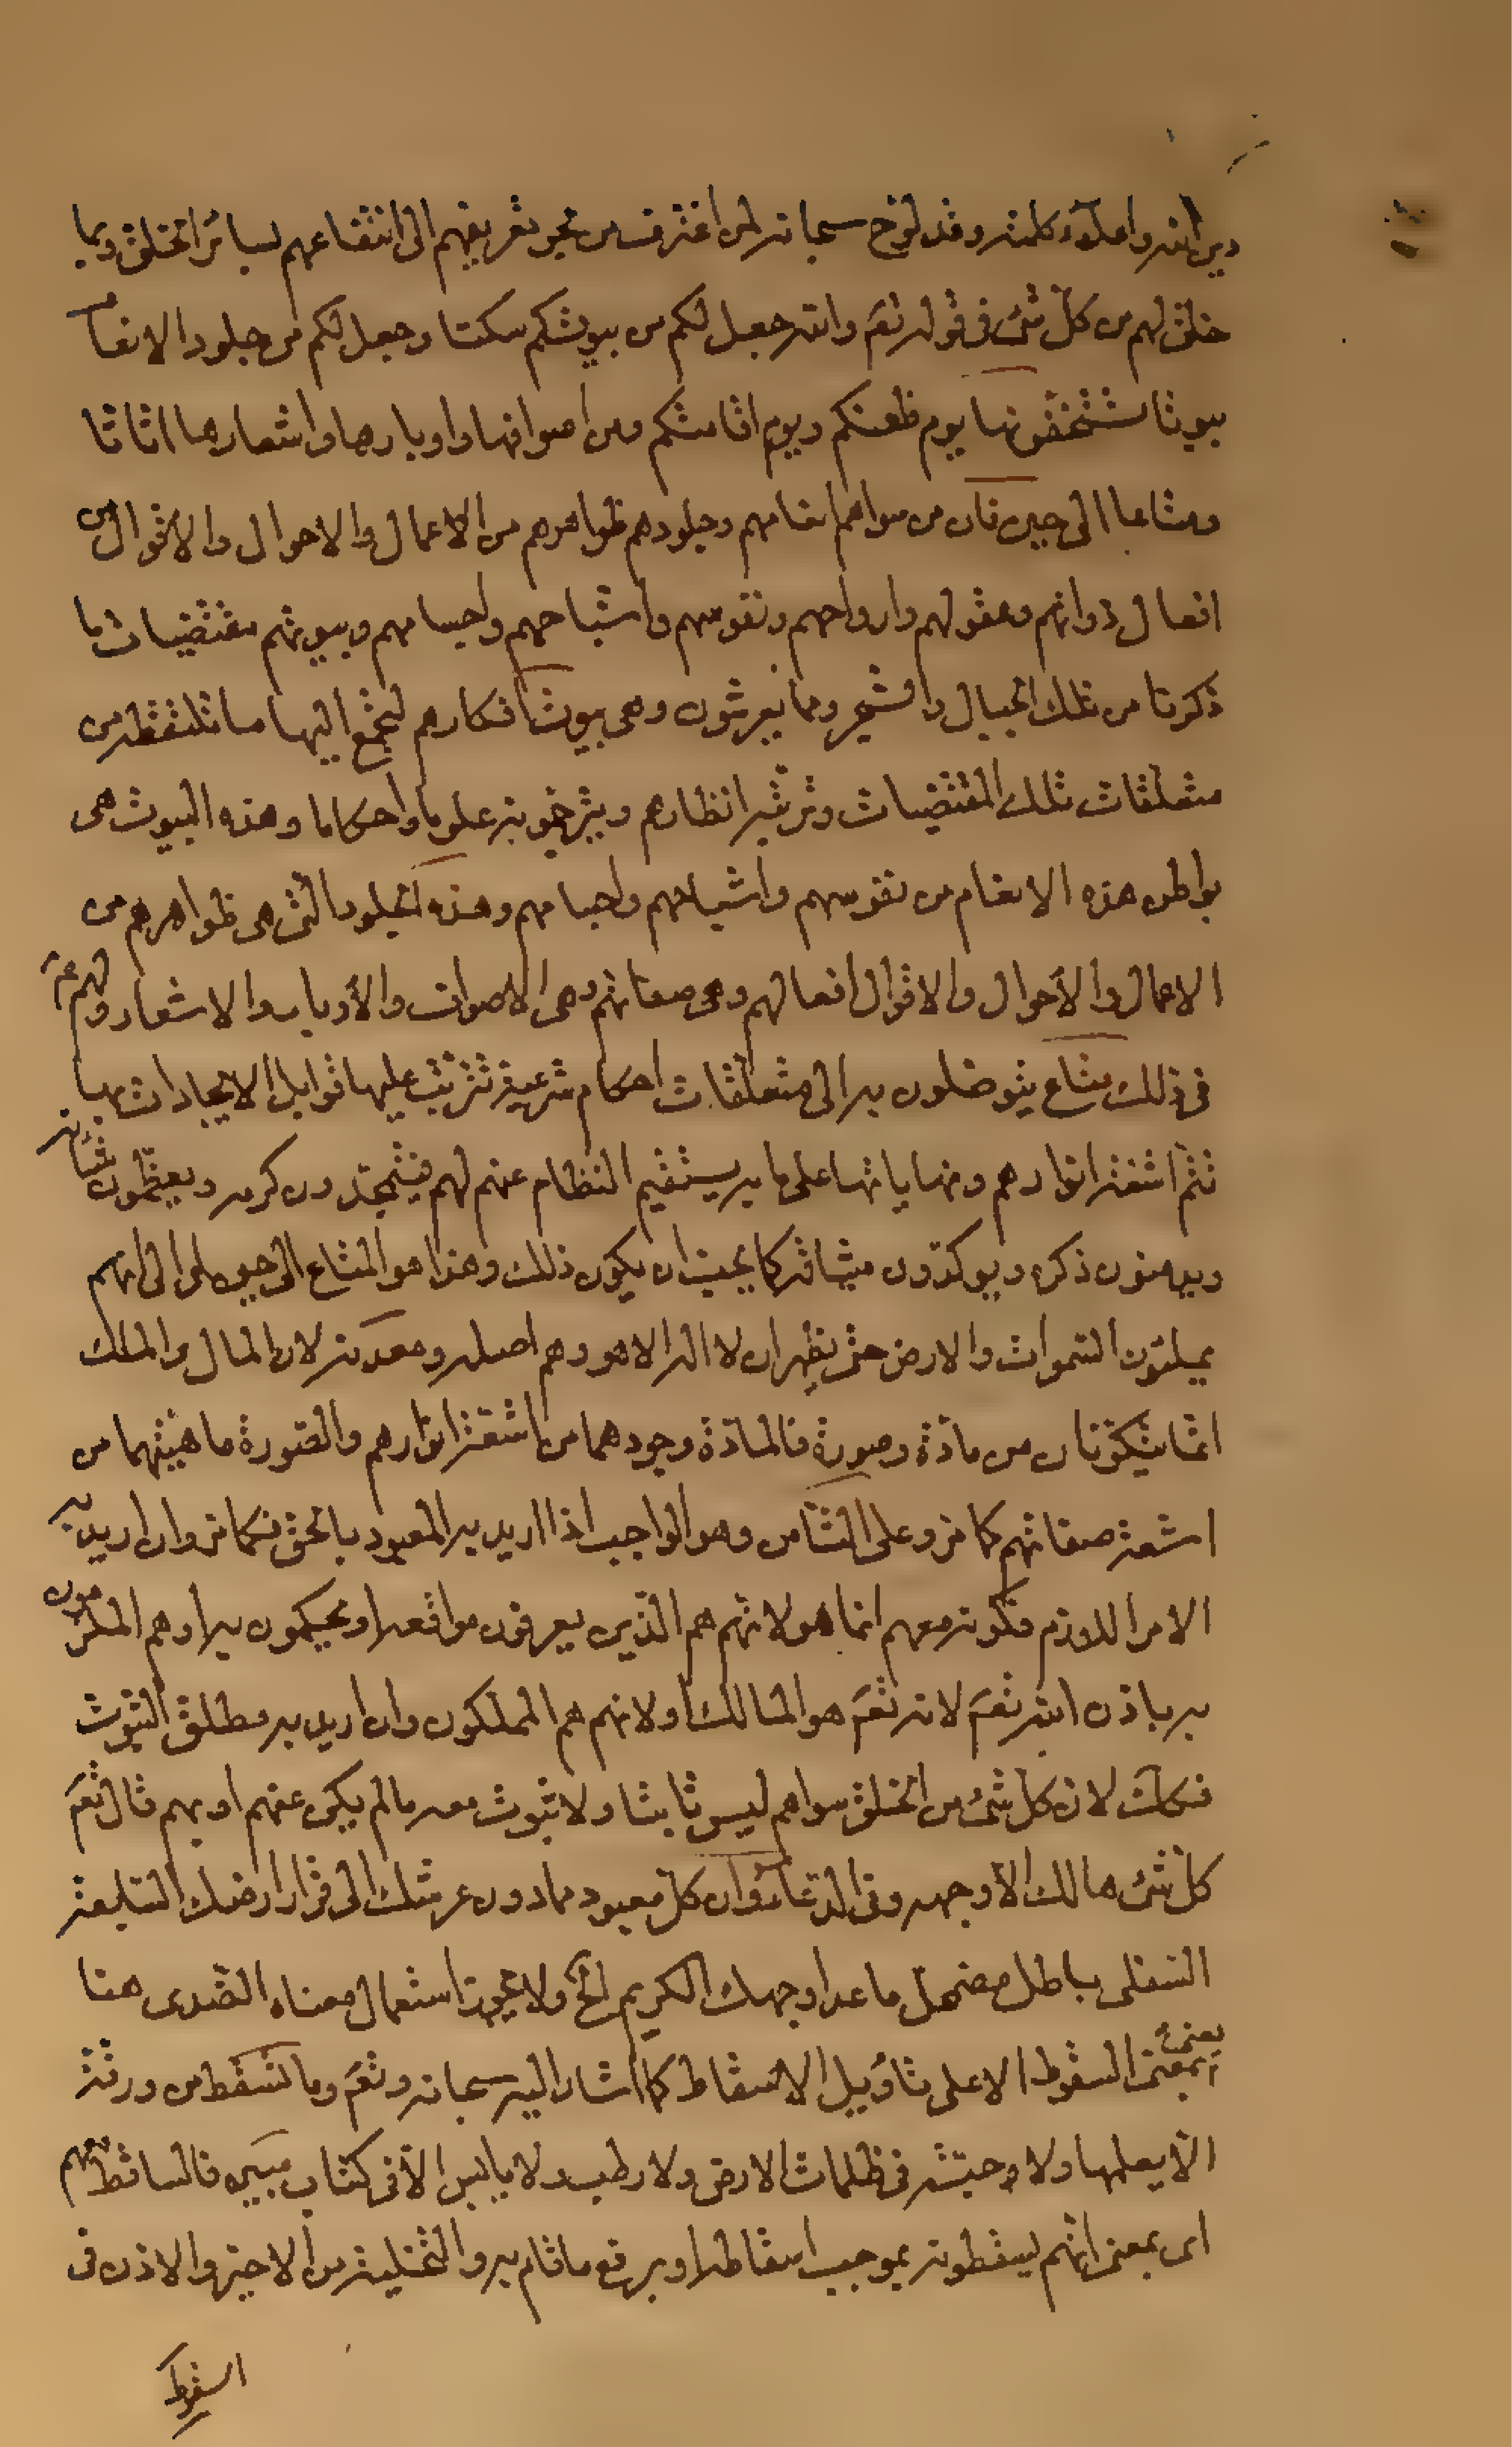 دين الله واعلاء كلمته وقد لوّح سبحانه لمن اغترف من بحر تعريفهم الى انتفاعهم بسائر الخلق وبما
خلق لهم من كلّ شیء فی قوله تعم والله جعل لكم من بيوتكم سكنا وجعل لكم من جلود الانعام
بيوتا تستخفّونها يوم ظعنكم ويوم اقامتكم ومن اصوافها واوبارها واشعارها اثاثا
ومتاعا الى حين فان من سواهم انعامهم وجلودهم ظواهرهم من الاعمال والاحوال والاقوال من
افعال ذواتهم وعقولهم وارواحهم ونفوسهم واشباحهم واجسامهم وبيوتهم مقتضيات ما
ذكرنا من تلك الجبال والشجر ومما يعرشون وهی بيوت افكارهم لتجمع اليها ما تلتقطه من
متعلقات تلك المقتضيات وترتيب انظارهم ويترخون به علوما واحكاما وهذه البيوت هی
بواطن هذه الانعام من نفوسهم واشباحهم واجسامهم وهذه الجلود التی هی ظواهرهم من
الاعمال والأحوال والاقوال افعالهم وهی صفاتهم وهی الاصواف والأوبار والاشعار ولهم ع
فی ذلك متاع يتوصّلون به الى متعلقات احكام شرعية تترتب عليها قوابل الايجادات بها
تتم اشعة انوارهم ونهاياتها على ما به يستقيم النظام عنهم لهم فيمجّدون كرمه ويعظّمون شأنه
ويدمنون ذكره ويوكدّون ميثاقه كما يجب ان يكون ذلك وهذا هو المتاع الى حين اى الى انهم
يملئون السّموات والارض حتى يظهر ان لا اله الا هو وهم اصله ومعدنه لان المال والملك
انّما يتكوّنان من مادّة وصورة فالمادّة وجودهما من اشعة انوارهم والصّورة ماهيّتهما من
اشعة صفاتهم كما مر وعلى الثامن وهو الواجب اذا اريد به المعبود بالحق فكما مر وان اريد به
الامر اللازم فكونه معهم انما هو لانّهم هم الّذين يعرفون مواقعه او يحكمون به او هم الملزمون
به باذن الله تعم لانه تعم هو المالك او لانهم هم المملكون وان اريد به مطلق الثبوت
فكذلك لان كلّ شیء من الخلق سواهم ليس ثابتا ولا ثبوت معه ما لم يكن عنهم او بهم قال تعم
كلّ شیء هالك الّا وجهه وفی الدّعاء وان كلّ معبود مما دون عرشك الى قرار ارضك السّابعة
السّفلى باطل مضمحلّ ما عدا وجهك الكريم الخ ولا يجوز استعمال معناه الضّدی هنا
بمعنى السقوط الا على تاويل الاسقاط كما اشار اليه سبحانه وتعم وما تسقط من ورقة
الّا يعلمها ولا حبّة فی ظلمات الارض ولا رطب ولا يابس الّا فی كتاب مبين فالساقط معهم
اى بمعنى انّهم يسقطونه بموجب اسقاطه او برفع ما قام به والتخلية من الاجل والاذن فی
السقوط